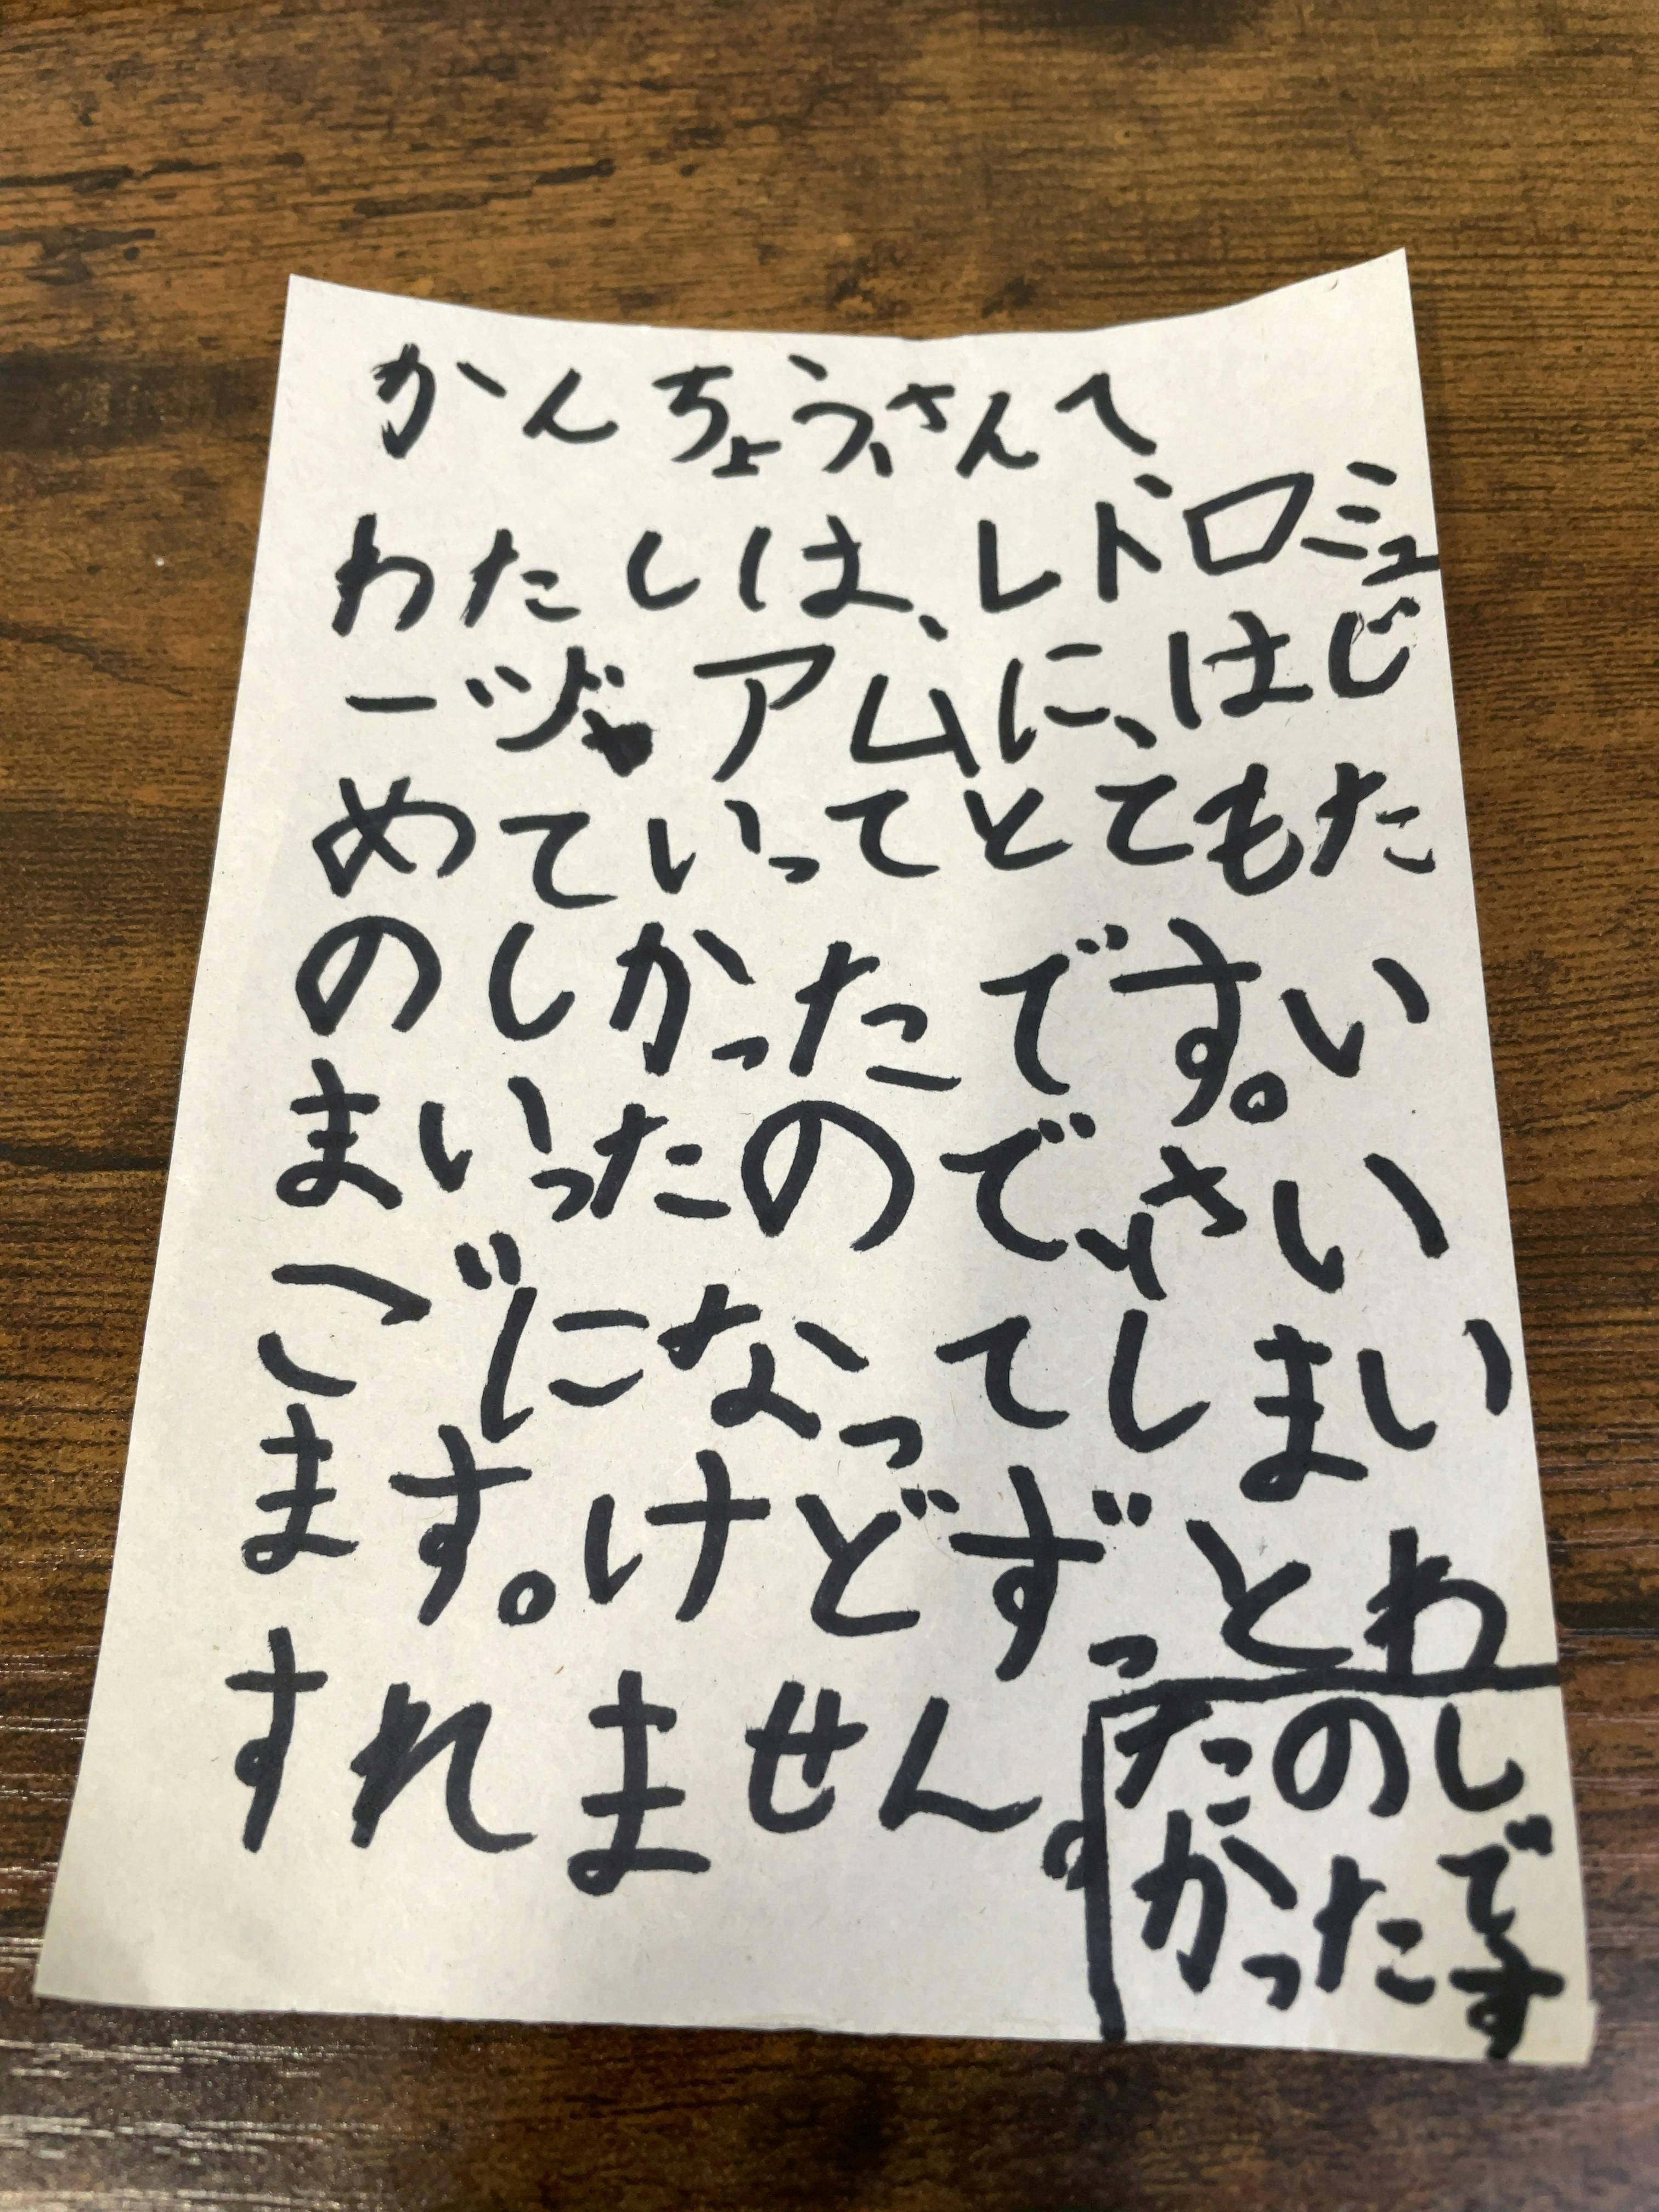 かんちょうさんへ
わたしは、レドロミュ
ーヅャアムに、はじ
めていってとてもた
のしかったです。い
まいったので、さい
ごになってしまい
ます。けどずっとわ
すれません。
たのし
かったです